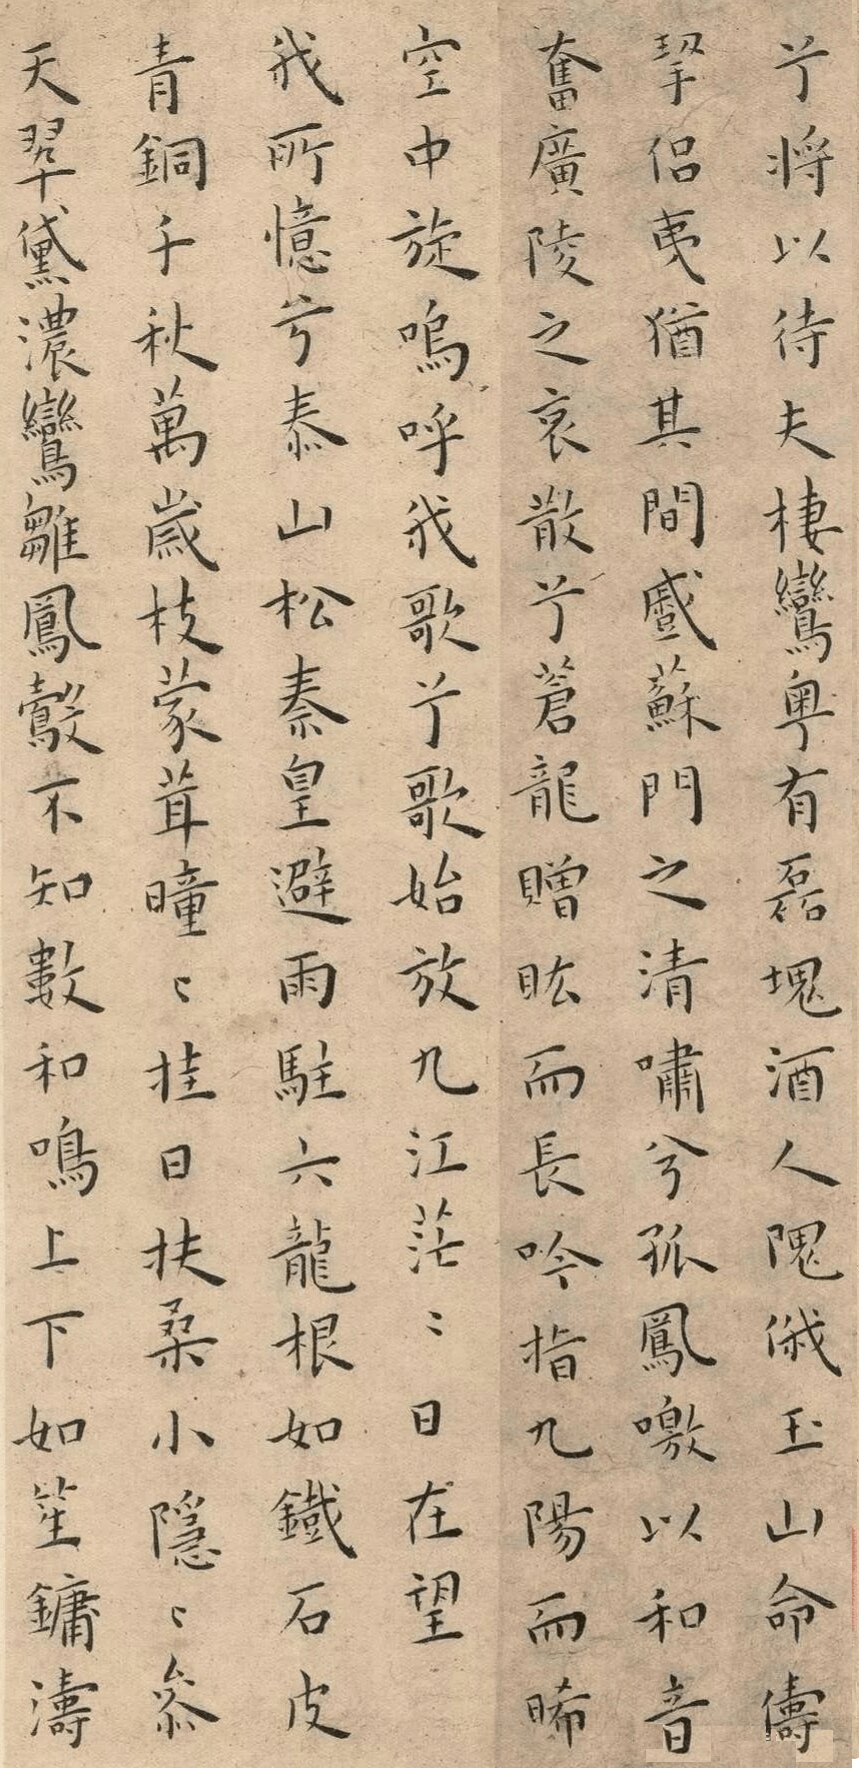 兮將以待夫棲鸞粵有磊塊酒人隗俄玉山命儔
挈侶夷猶其間盛蘇門之清嘯兮孤鳳噭以和音
奮廣陵之哀散兮蒼龍贈眩而長吟指九陽而晞
空中旋嗚呼我歌兮歌始放九江茫〻日在望
我所憶兮泰山松秦皇避雨駐六龍根如鐵石皮
青銅千秋萬歲枝蒙茸曈〻挂日扶桑小隱〻參
天翠黛濃鸞雛鳳鷇不知數和鳴上下如笙鏞濤